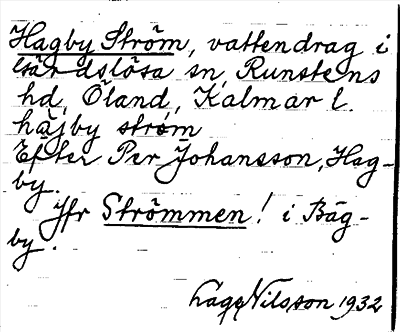 Hagby Ström, vattendrag i
Gärdslösa sn, Runstens
hd, Öland, Kalmar l.
hä̀jby strøm
Efter Per Johansson, Hag-
by.
Jfr Strömmen! i Bäg-
by.
Låge Nilsson 1932